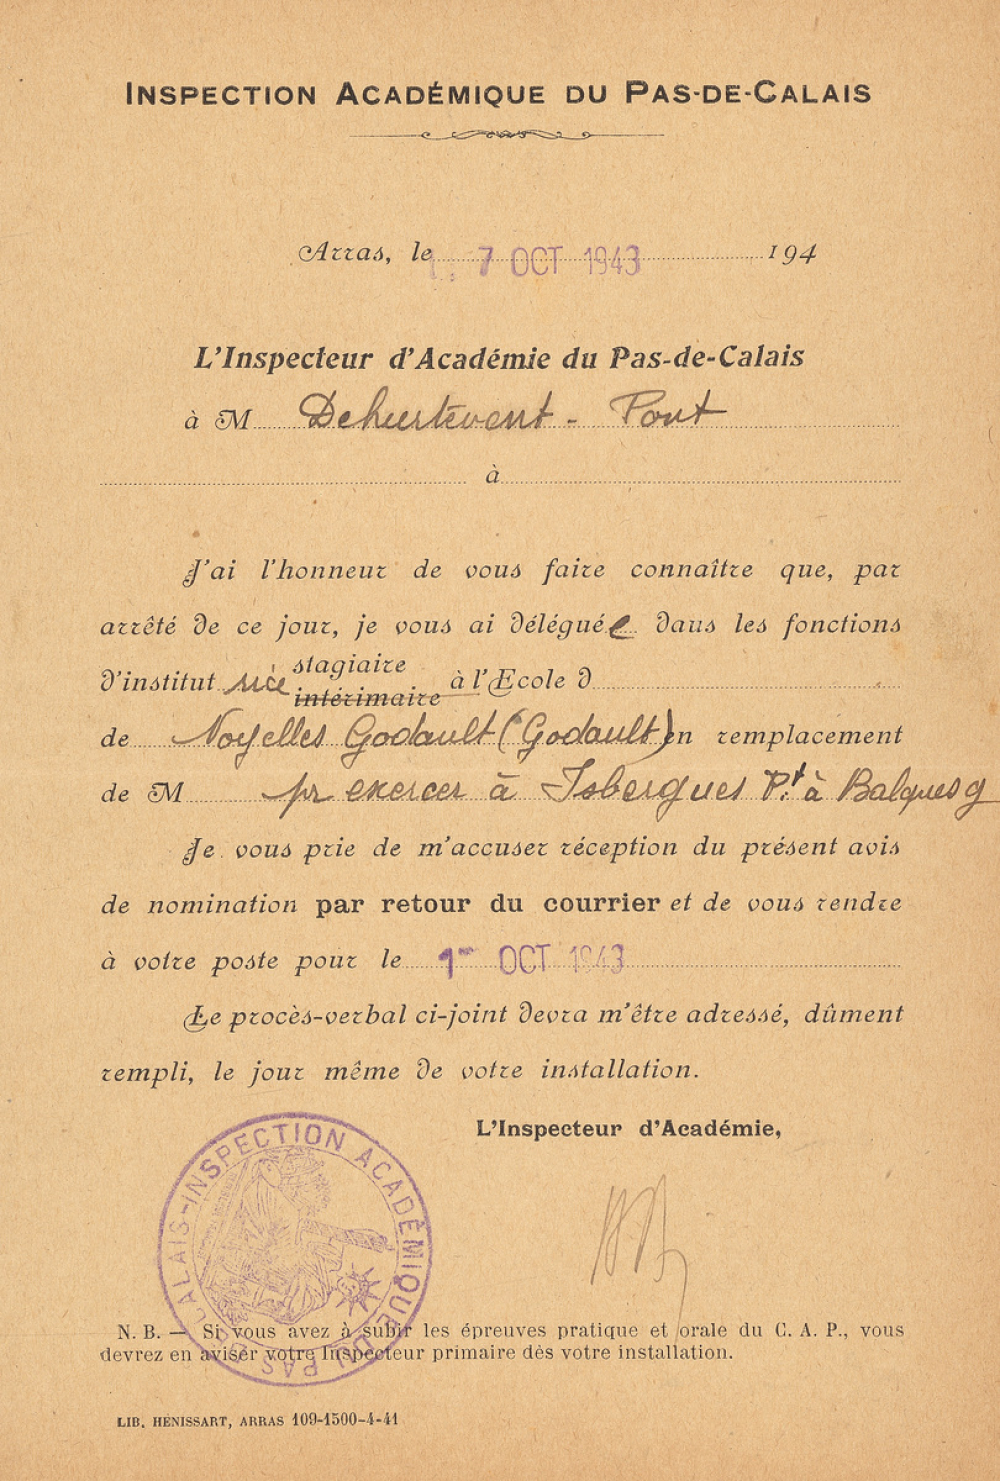 INSPECTION ACADÉMIQUE DU PAS-DE-CALAIS
Arras, le 7 OCT 1943 194
L'Inspecteur d'Académie du Pas-de-Calais
à M Dehurtevent - Pont
à
J'ai l'honneur de vous faire connaître que, par
arrêté de ce jour, je vous ai déléguée dans les fonctions
d'institutrice stagiaire intérimaire à l'Ecole d
de Noyelles Godault (Godault) en remplacement
de M pr exercer à Isbergues Pt à
Je vous prie de m'accuser réception du présent avis
de nomination par retour du courrier et de vous rendre
à votre poste pour le 1er OCT 1943
Le procès-verbal ci-joint devra m'être adressé, dûment
rempli, le jour même de votre installation.
L'Inspecteur d'Académie,
INSPECTION ACADÉMIQUE DU PAS DE CALAIS
N. B. — Si vous avez à subir les épreuves pratique et orale du C. A. P., vous
devrez en aviser votre Inspecteur primaire dès votre installation.
LIB. HÉNISSART, ARRAS 109-1500-4-41